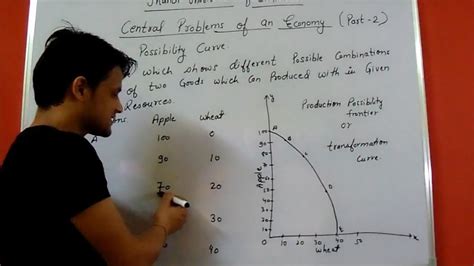 Central Problems of an Economy (Part-2)
Possibility Curve
which shows different Possible Combinations
of two Goods which Can Produced with in Given
Resources
Apple wheat
A 100 0
90 10
70 20
30
0 40
Production Possibility
frontier
or
transformation
Curve
y
100
90
80
70
60
50
40
30
20
10
Apple
A
0 10 20 30 40 50 x
Wheat